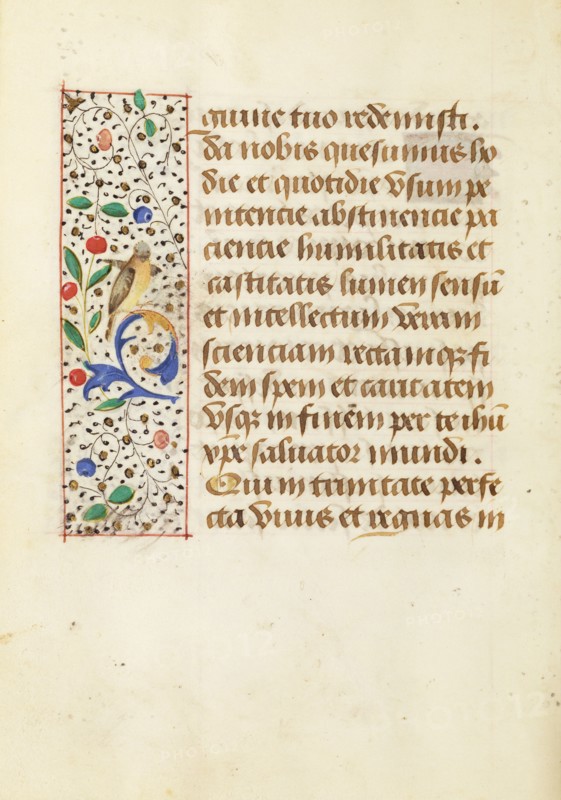 guine tuo redemisti.
Da nobis quesumus ho
die et quotidie vsum pe
nitencie abstinencie pa
ciencie humilitatis et
castitatis lumen sensū
et intellectum veram
scienciam rectamqꝫ fi
dem spem et caritatem
vsqꝫ in finem per te ihū
xp̄e saluator mundi.
Qui in trinitate perfe
cta viuis et regnas in